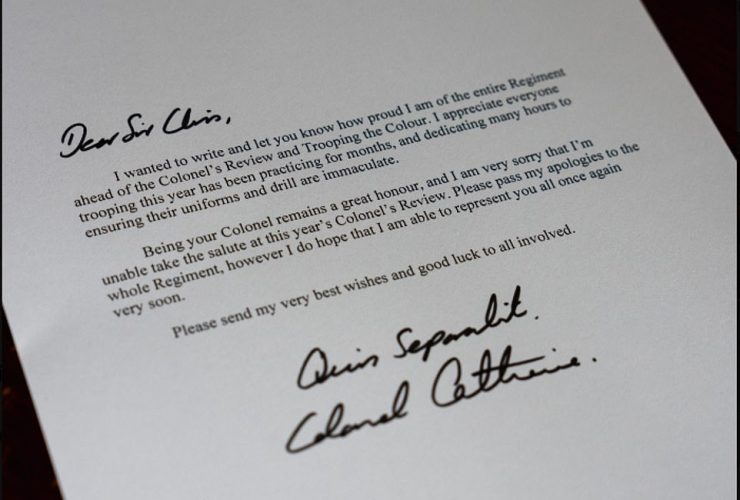 Dear Sir Chris,
I wanted to write and let you know how proud I am of the entire Regiment
ahead of the Colonel's Review and Trooping the Colour. I appreciate everyone
trooping this year has been practicing for months, and dedicating many hours to
ensuring their uniforms and drill are immaculate.
Being your Colonel remains a great honour, and I am very sorry that I'm
unable take the salute at this year's Colonel's Review. Please pass my apologies to the
whole Regiment, however I do hope that I am able to represent you all once again
very soon.
Please send my very best wishes and good luck to all involved.
Quis Separabit.
Colonel Catherine.